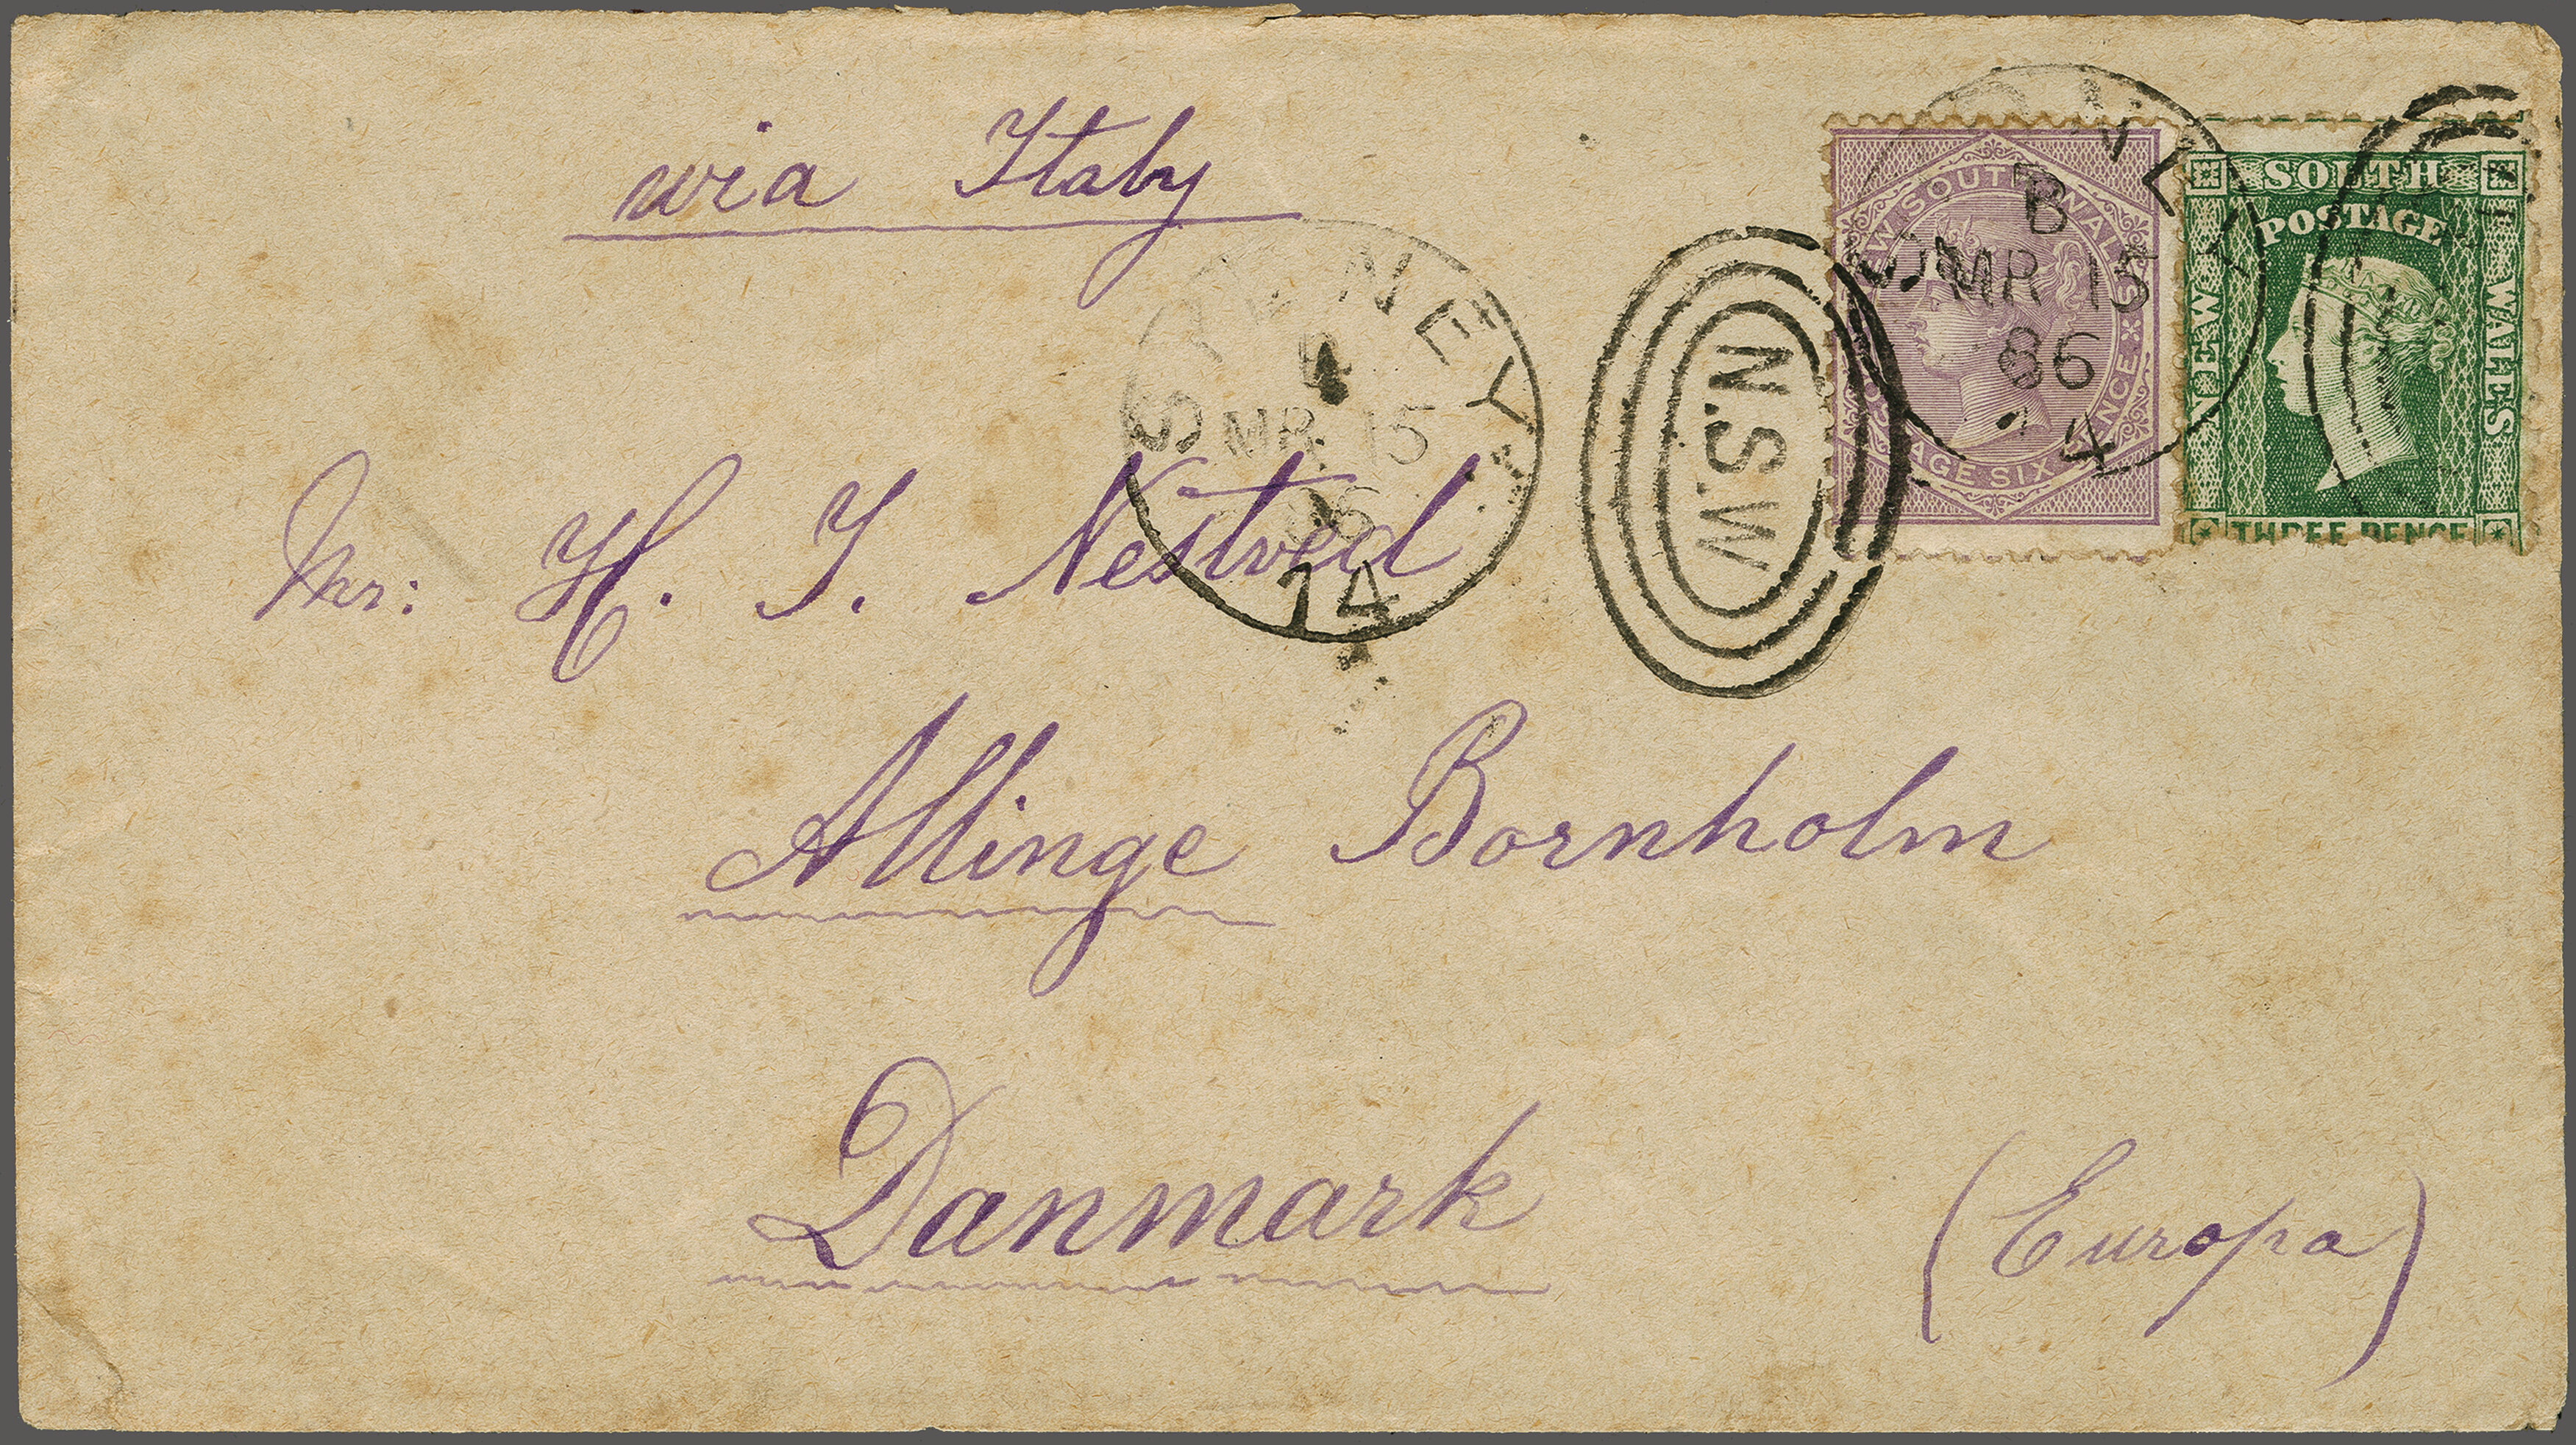 via Italy
SYDNEY
B
MR 15
86
14
N.S.W
NEW SOUTH WALES
POSTAGE SIXPENCE
SYDNEY
B
MR 15
86
14
SOUTH
POSTAGE
NEW
WALES
THREE PENCE
Mr: H. J. Nestved
Allinge Bornholm
Danmark
(Europa)